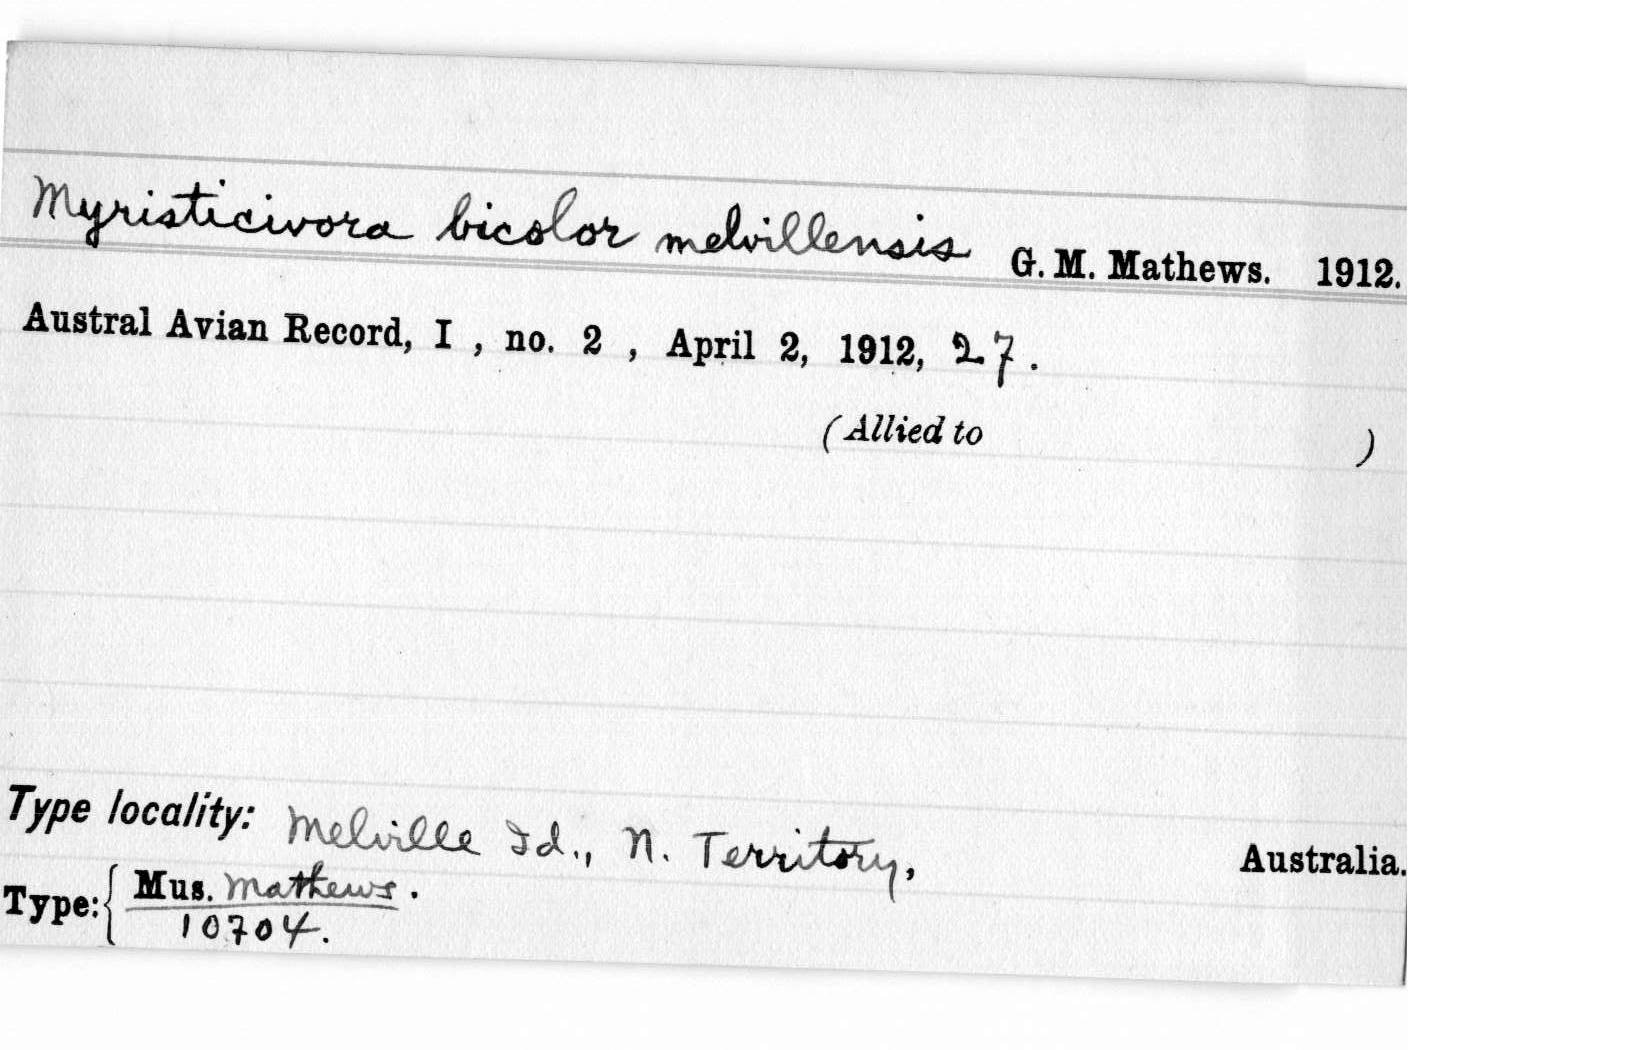 Myristicivora bicolor melvillensis G. M. Mathews. 1912.
Austral Avian Record, I , no. 2 , April 2, 1912, 27 .
(Allied to )
Type locality: Melville Id., N. Territory, Australia.
Type: { Mus. Mathews .
10704.